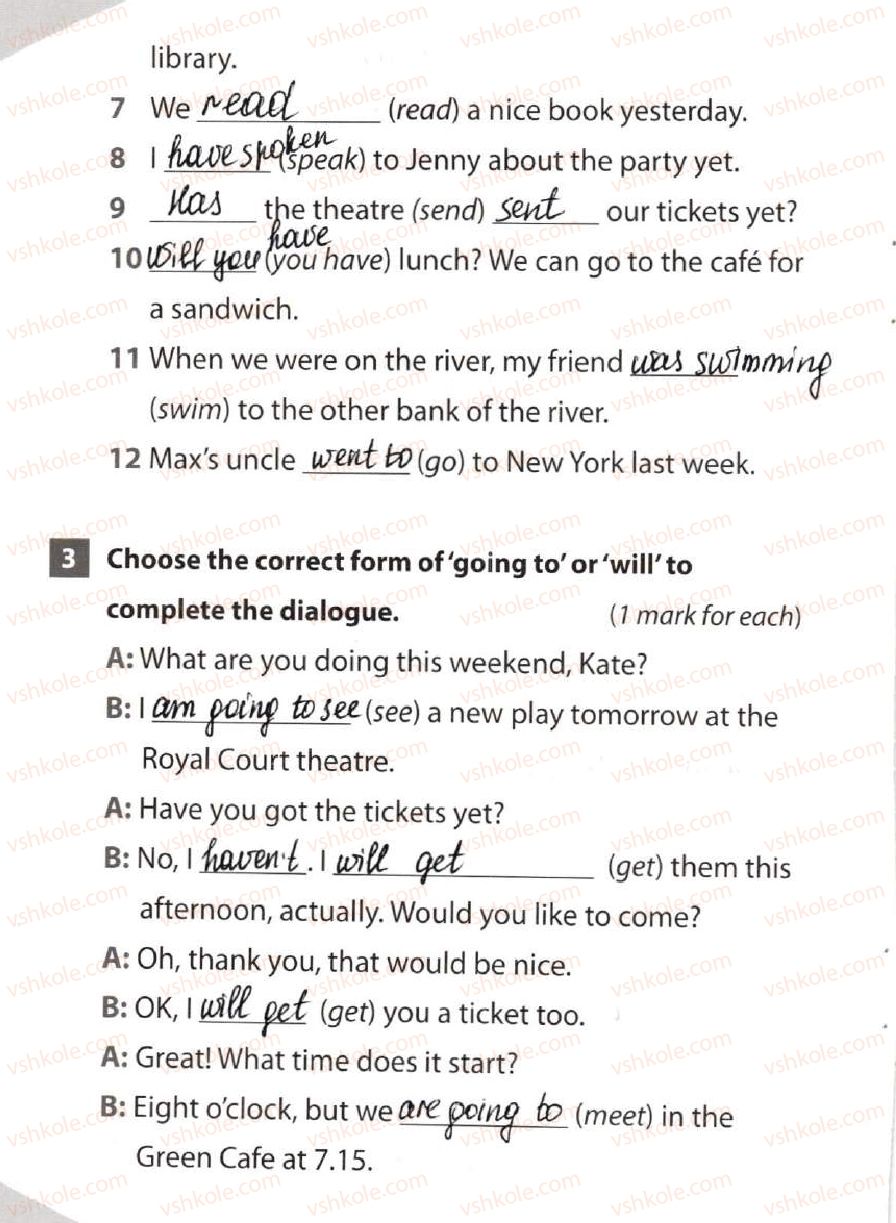 library.
7 We read (read) a nice book yesterday.
8 I have spoken (speak) to Jenny about the party yet.
9 Has the theatre (send) sent our tickets yet?
10 Will you have (you have) lunch? We can go to the café for
a sandwich.
11 When we were on the river, my friend was swimming
(swim) to the other bank of the river.
12 Max's uncle went to (go) to New York last week.
3 Choose the correct form of 'going to' or 'will' to
complete the dialogue. (1 mark for each)
A: What are you doing this weekend, Kate?
B: I am going to see (see) a new play tomorrow at the
Royal Court theatre.
A: Have you got the tickets yet?
B: No, I haven't. I will get (get) them this
afternoon, actually. Would you like to come?
A: Oh, thank you, that would be nice.
B: OK, I will get (get) you a ticket too.
A: Great! What time does it start?
B: Eight o'clock, but we are going to (meet) in the
Green Cafe at 7.15.